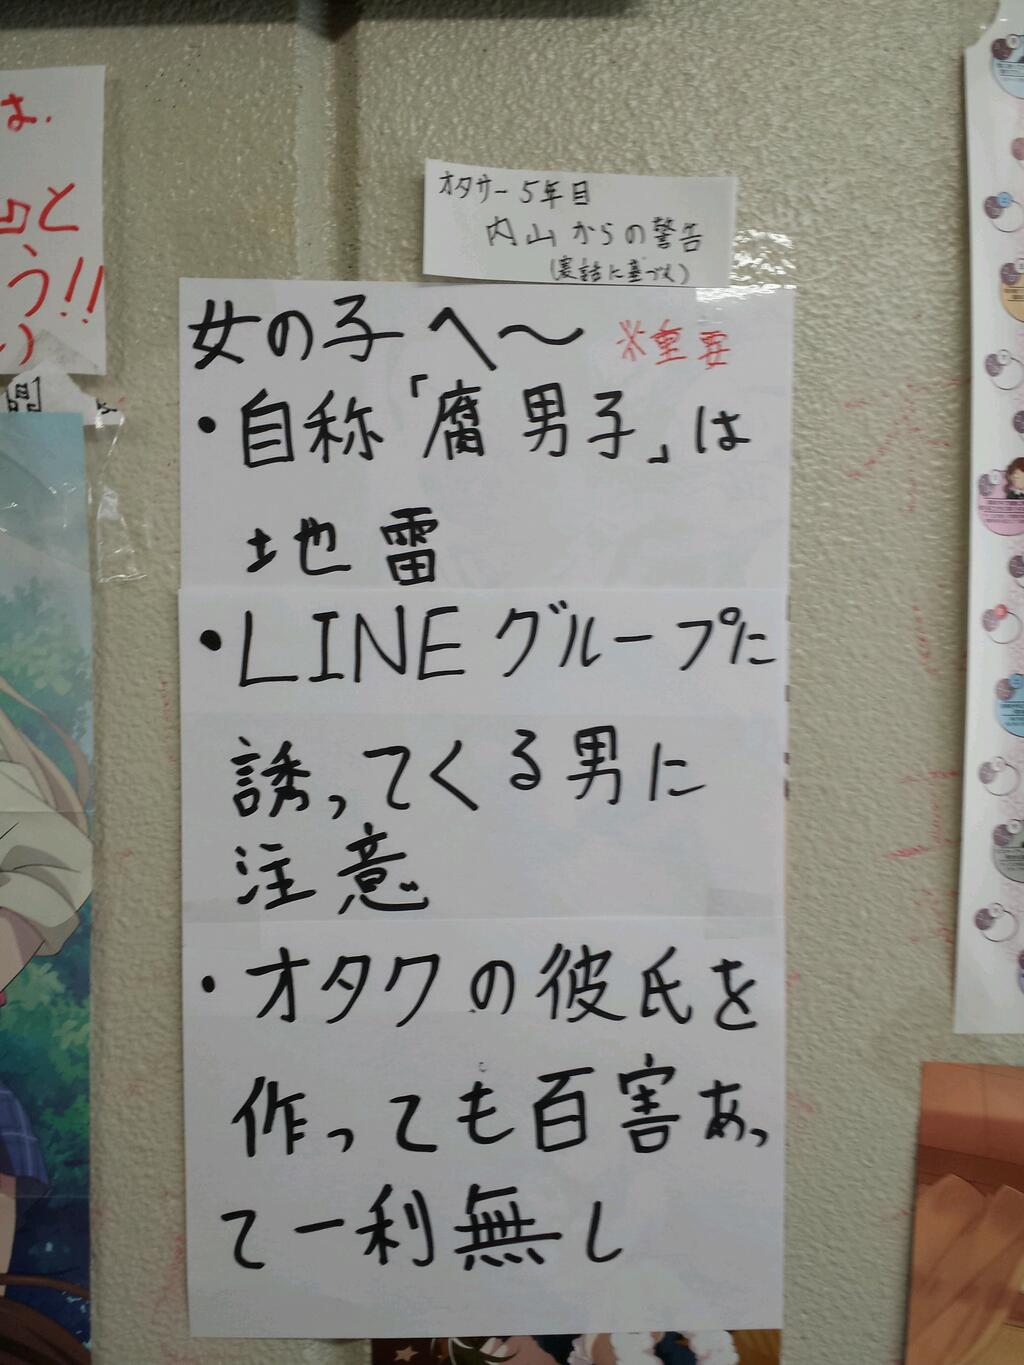 オタサー5年目
内山からの警告
(裏話に基づく)
女の子へ～ ※重要
・自称「腐男子」は
地雷
・LINEグループに
誘ってくる男に
注意
・オタクの彼氏を
作っても百害あっ
て一利無し
は.
と
う!!